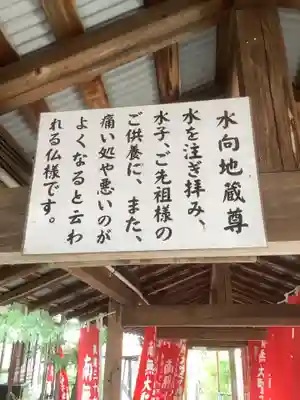 水向地蔵尊
水を注ぎ拝み、
水子、ご先祖様の
ご供養に、また、
痛い処や悪いのが
よくなると云わ
れる仏様です。
南無大